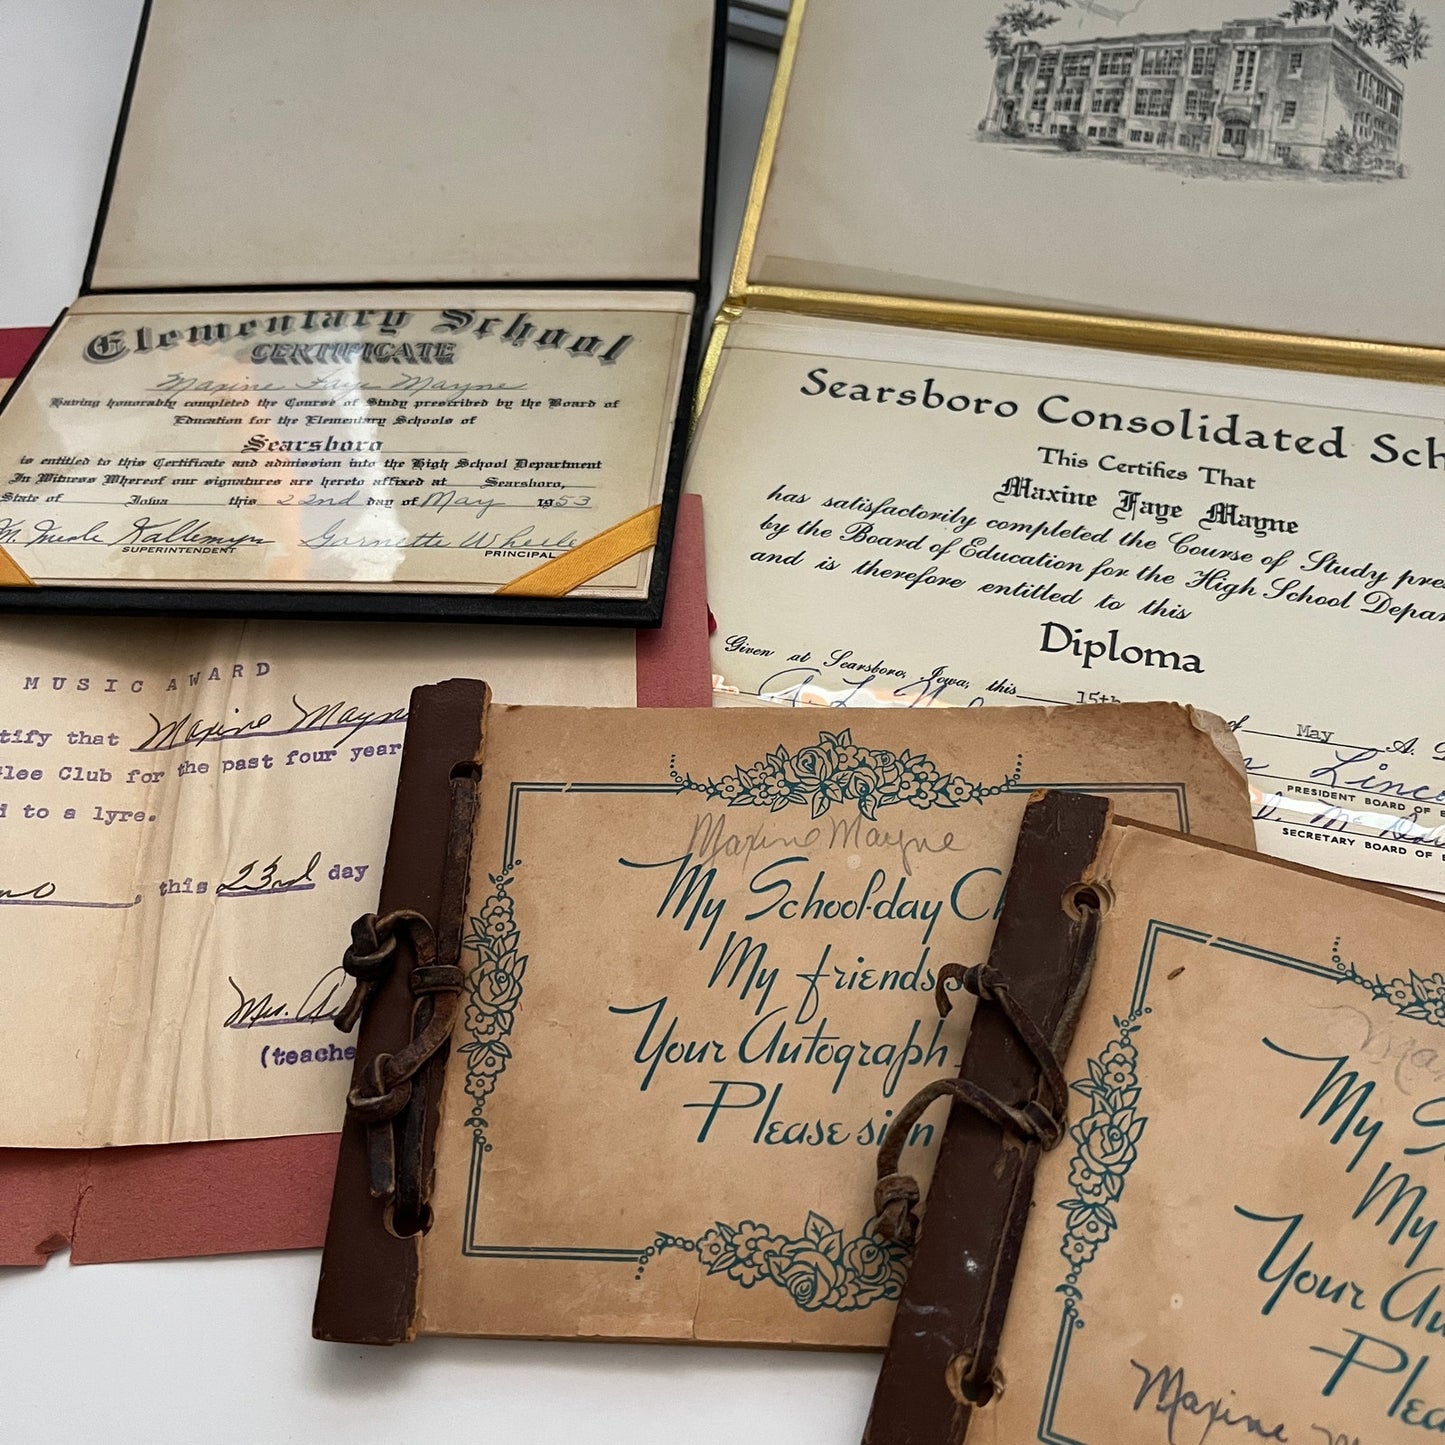 Elementary School
CERTIFICATE
Maxine Faye Mayne
Having honorably completed the Course of Study prescribed by the Board of
Education for the Elementary Schools of
Searsboro
is entitled to this Certificate and admission into the High School Department
In Witness Whereof our signatures are hereto affixed at Searsboro,
State of Iowa this 22nd day of May 1953
M. Merle Kallemyn Garnette Wheele
SUPERINTENDENT PRINCIPAL
Searsboro Consolidated Sch
This Certifies That
Maxine Faye Mayne
has satisfactorily completed the Course of Study pres
by the Board of Education for the High School Depar
and is therefore entitled to this
Diploma
Given at Searsboro, Iowa, this 15th
of May A.
Linco
PRESIDENT BOARD OF E
SECRETARY BOARD OF E
MUSIC AWARD
tify that Maxine Mayn
Glee Club for the past four year
d to a lyre.
this 23rd day
Mrs.
(teache
Maxine Mayne
My School-day Ch
My friends
Your Autograph
Please sign
Ma
My S
My
Your Au
Plea
Maxine M